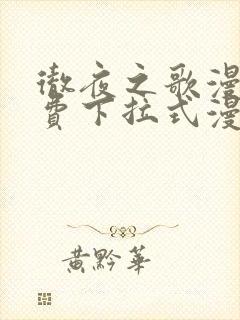 徹夜之歌漫
費下拉式漫
黃黔華